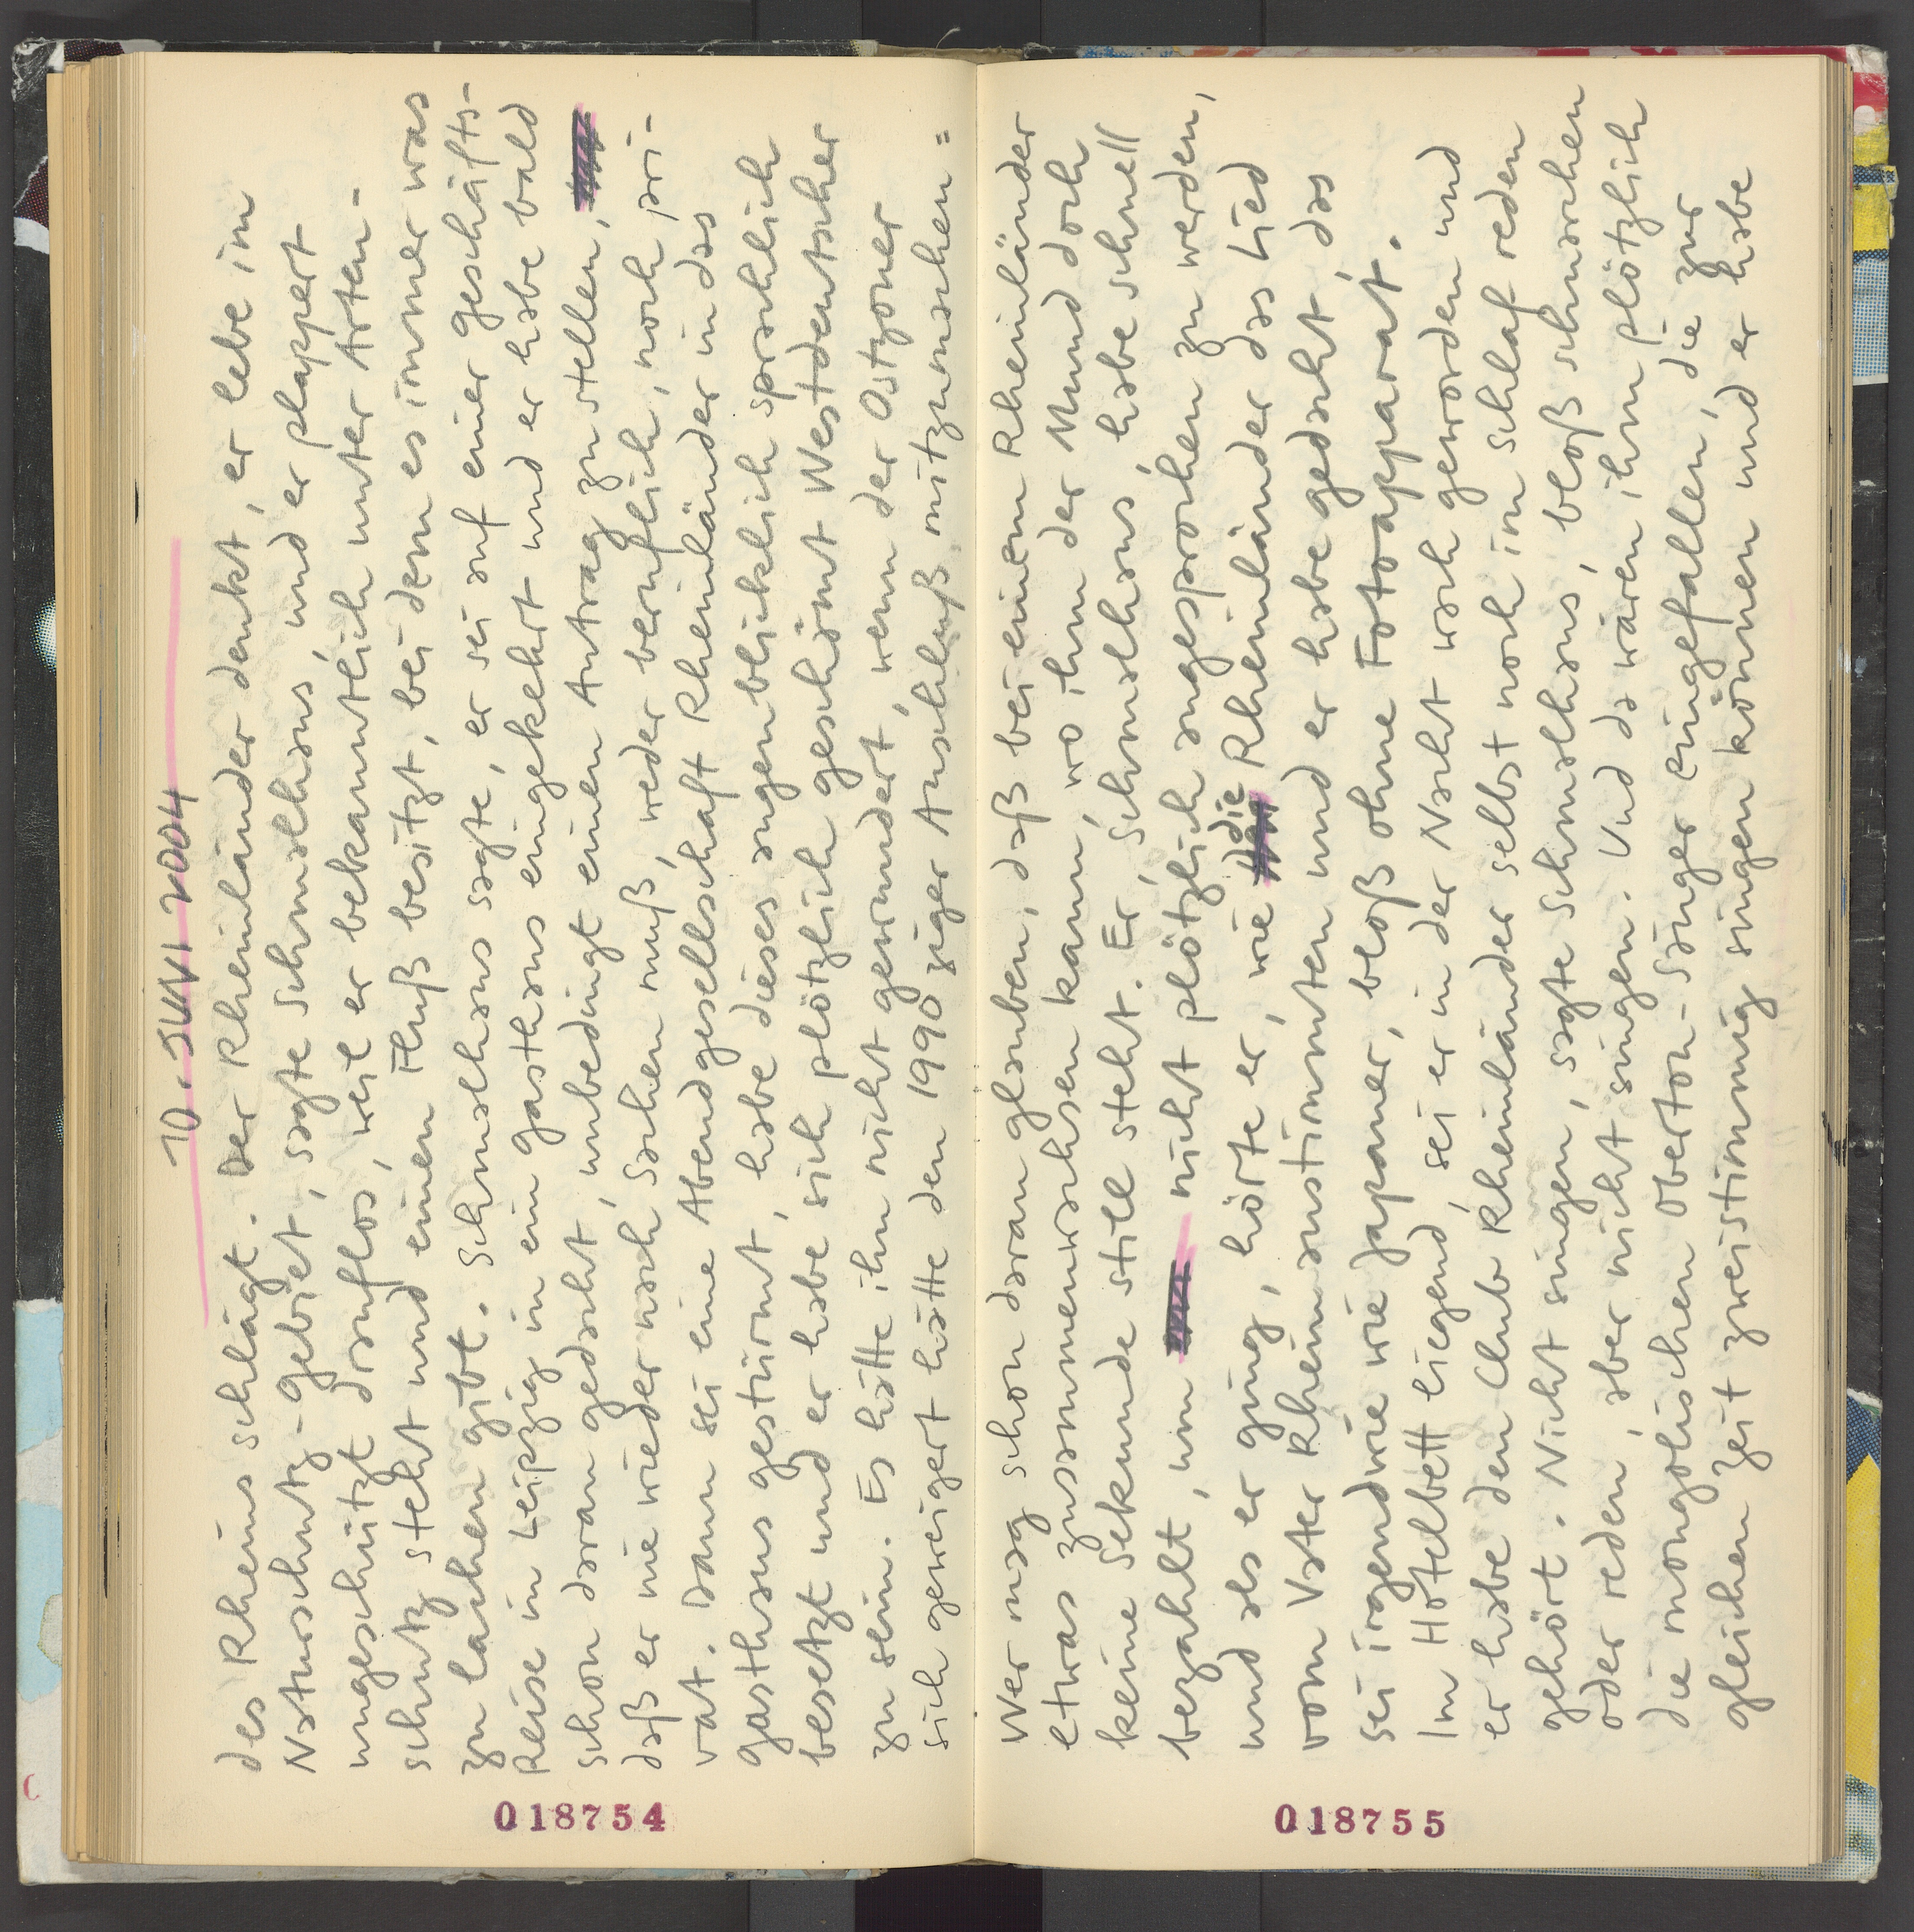 10. JUNI 2004
des Rheins schlägt. Der Rheinländer denkt, er lebe im
Naturschutz-Gebiet, sagte Schmalhans, und er plappert
ungeschützt drauflos, weil er bekanntlich unter Arten-
schutz steht und einen Fluß besitzt, bei dem es immer was
zu lachen gibt. Schmalhans sagte, er sei auf einer Geschäfts-
Reise in Leipzig in ein Gasthaus eingekehrt und er habe bald
schon daran gedacht, unbedingt einen Antrag zu stellen,
daß er nie wieder nach Sachen muß, weder beruflich, noch pri-
vat. Dann sei eine Abendgesellschaft Rheinländer in das
Gasthaus gestürmt, habe dieses augenblicklich sprachlich
besetzt und er habe sich plötzlich geschämt Westdeutscher
zu sein. Es hätte ihn nicht gewundert, wenn der Ostzoner
sich geweigert hätte den 1990ziger Anschluß mitzumachen =
018754
Wer mag schon daran glauben, daß bei einem Rheinländer
etwas zusammenwachsen kann, wo ihm der Mund doch
keine Sekunde still steht. Er, Schmalhans, habe schnell
bezahlt, um nicht plötzlich angesprochen zu werden,
und als er ging, hörte er, wie die Rheinländer das Lied
vom Vater Rhein anstimmten und er habe gedacht, das
sei irgendwie wie Japaner, bloß ohne Fotoapparat.
Im Hotelbett liegend, sei er in der Nacht wach geworden und
er habe den Club Rheinländer selbst noch im Schlaf reden
gehört. Nicht singen, sagte Schmalhans, bloß schnarchen
oder reden, aber nicht singen. Und da wären ihm plötzlich
die mongolischen Oberton-Sänger eingefallen, die zur
gleichen Zeit zweistimmig singen können und er habe
018755